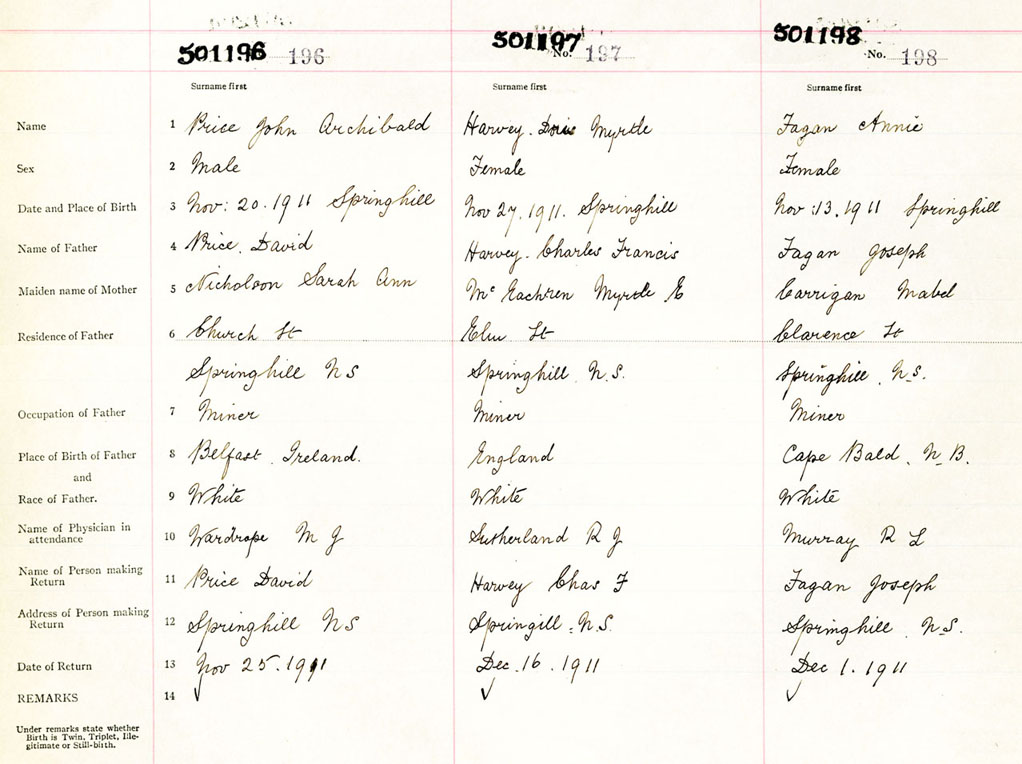 501196 196 501197 No. 197 501198 No. 198
Surname first Surname first Surname first
Name 1 Price John Archibald Harvey. Doris Myrtle Fagan Annie
Sex 2 Male Female Female
Date and Place of Birth 3 Nov: 20. 1911 Springhill Nov 27. 1911. Springhill Nov: 13. 1911 Springhill
Name of Father 4 Price. David Harvey. Charles Francis Fagan Joseph
Maiden name of Mother 5 Nicholson Sarah Ann Mc Eachren Myrtle E Carrigan Mabel
Residence of Father 6 Church St Elm St Clarence St
Springhill N S Springhill. N.S. Springhill. N.S.
Occupation of Father 7 Miner Miner Miner
Place of Birth of Father 8 Belfast. Ireland. England Cape Bald. N.B.
and
Race of Father. 9 White White White
Name of Physician in
attendance 10 Wardrope M J Sutherland R J Murray R L
Name of Person making
Return 11 Price David Harvey Chas F Fagan Joseph
Address of Person making
Return 12 Springhill N S Springill. N.S. Springhill. N.S.
Date of Return 13 Nov 25. 1911 Dec. 16. 1911 Dec 1. 1911
REMARKS 14 ✓ ✓ ✓
Under remarks state whether
Birth is Twin, Triplet, Ille-
gitimate or Still-birth.